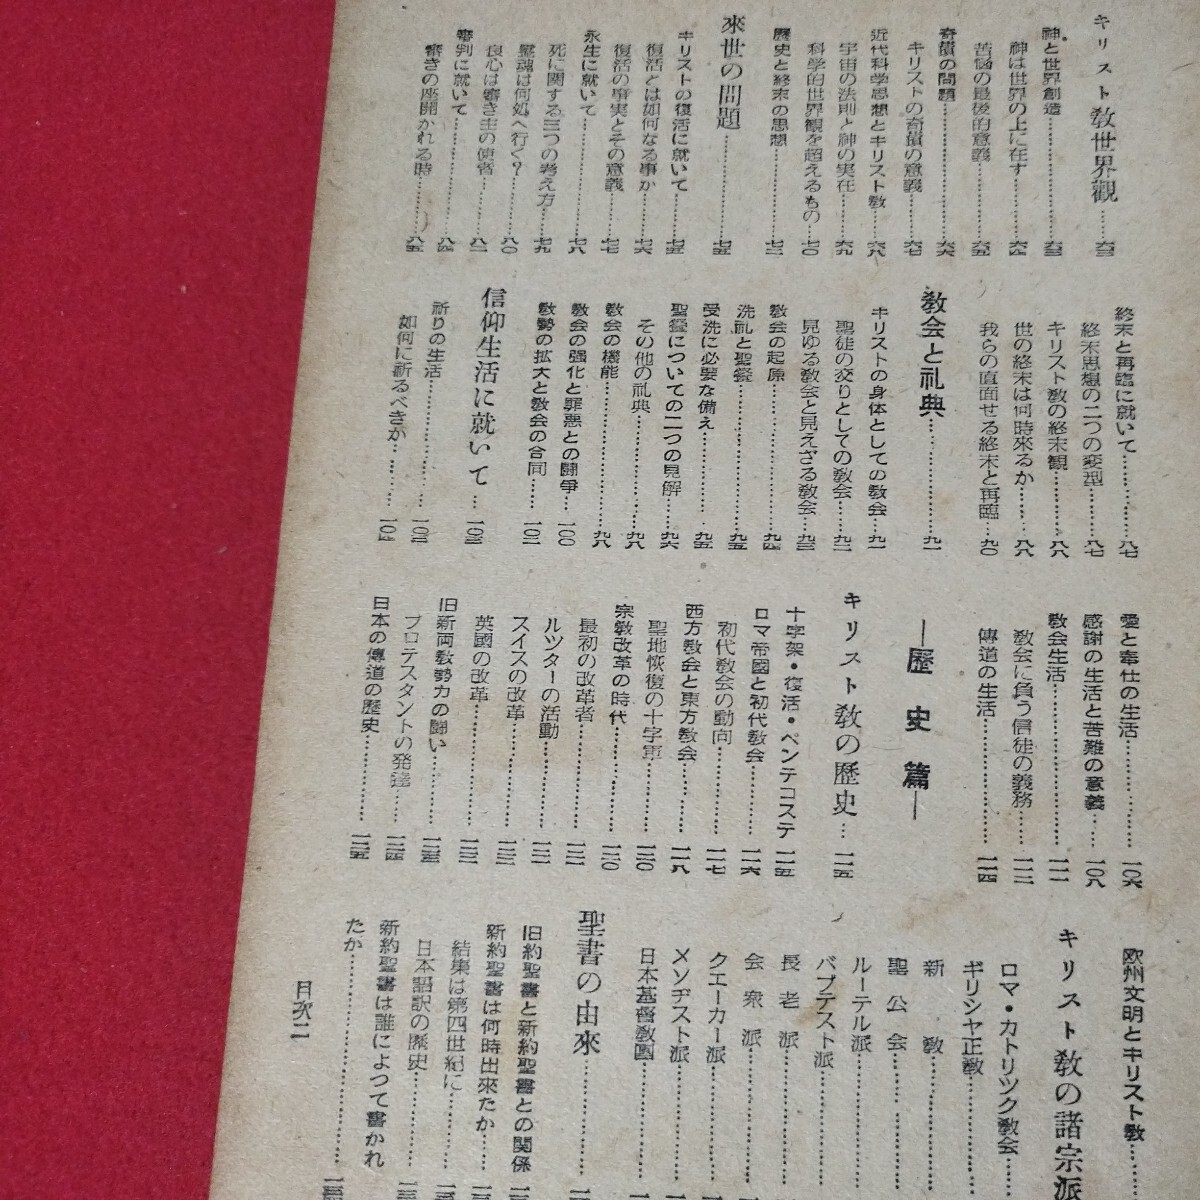 キリスト教世界観……六三
神と世界創造……六三
神は世界の上に在す……六四
苦悩の最後的意義……六五
奇蹟の問題……六六
キリストの奇蹟の意義……六七
近代科学思想とキリスト教……六八
宇宙の法則と神の実在……六九
科学的世界観を超えるもの……七〇
歴史と終末の思想……七二
來世の問題……七五
キリストの復活に就いて……七五
復活とは如何なる事か……七六
復活の事実とその意義……七七
永生に就いて……七八
死に関する三つの考え方……七九
霊魂は何処へ行く?……八〇
良心は審き主の使者……八二
審判に就いて……八四
審きの座開かれる時……八五
終末と再臨に就いて……八七
終末思想の二つの変型……八七
キリスト教の終末観……八八
世の終末は何時來るか……八八
我らの直面せる終末と再臨…九〇
教会と礼典……九一
キリストの身体としての教会…九一
聖徒の交りとしての教会……九二
見ゆる教会と見えざる教会…九三
教会の起原……九四
洗礼と聖餐……九五
受洗に必要な備え……九五
聖餐についての二つの見解…九六
その他の礼典……九八
教会の機能……九八
教会の強化と罪悪との闘爭…一〇〇
教勢の拡大と教会の合同……一〇二
信仰生活に就いて…一〇三
祈りの生活……一〇三
如何に祈るべきか……一〇四
愛と奉仕の生活……一〇六
感謝の生活と苦難の意義……一〇八
教会生活……一一一
教会に負う信徒の義務……一一二
傳道の生活……一一四
―歴史篇―
キリスト教の歴史…一一五
十字架・復活・ペンテコステ 一一五
ロマ帝國と初代教会……一一六
初代教会の動向……一一七
西方教会と東方教会……一一八
聖地恢復の十字軍……一二〇
宗教改革の時代……一二〇
最初の改革者……一二一
ルツターの活動……一二一
スイスの改革……一二二
英國の改革……一二二
旧新両教勢力の闘い……一二三
プロテスタントの発達……一二四
日本の傳道の歴史……一二五
欧州文明とキリスト教……
キリスト教の諸宗派
ロマ・カトリツク教会……
ギリシヤ正教……
新教……
聖公会……
ルーテル派……
バプテスト派……
長老派……
会衆派……
クエーカー派……
メソヂスト派……
日本基督教團……
聖書の由來……
旧約聖書と新約聖書との関係
新約聖書は何時出來たか……
結集は第四世紀に……
日本語訳の歴史……
新約聖書は誰によつて書かれ
たか……
目次二